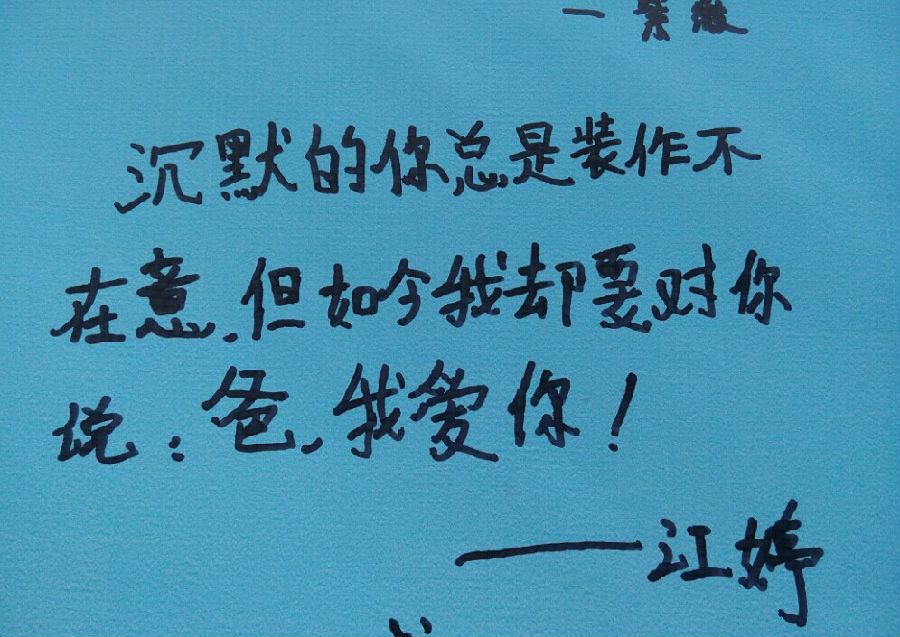 沉默的你总是装作不
在意,但如今我却要对你
说:爸,我爱你!
——江婷